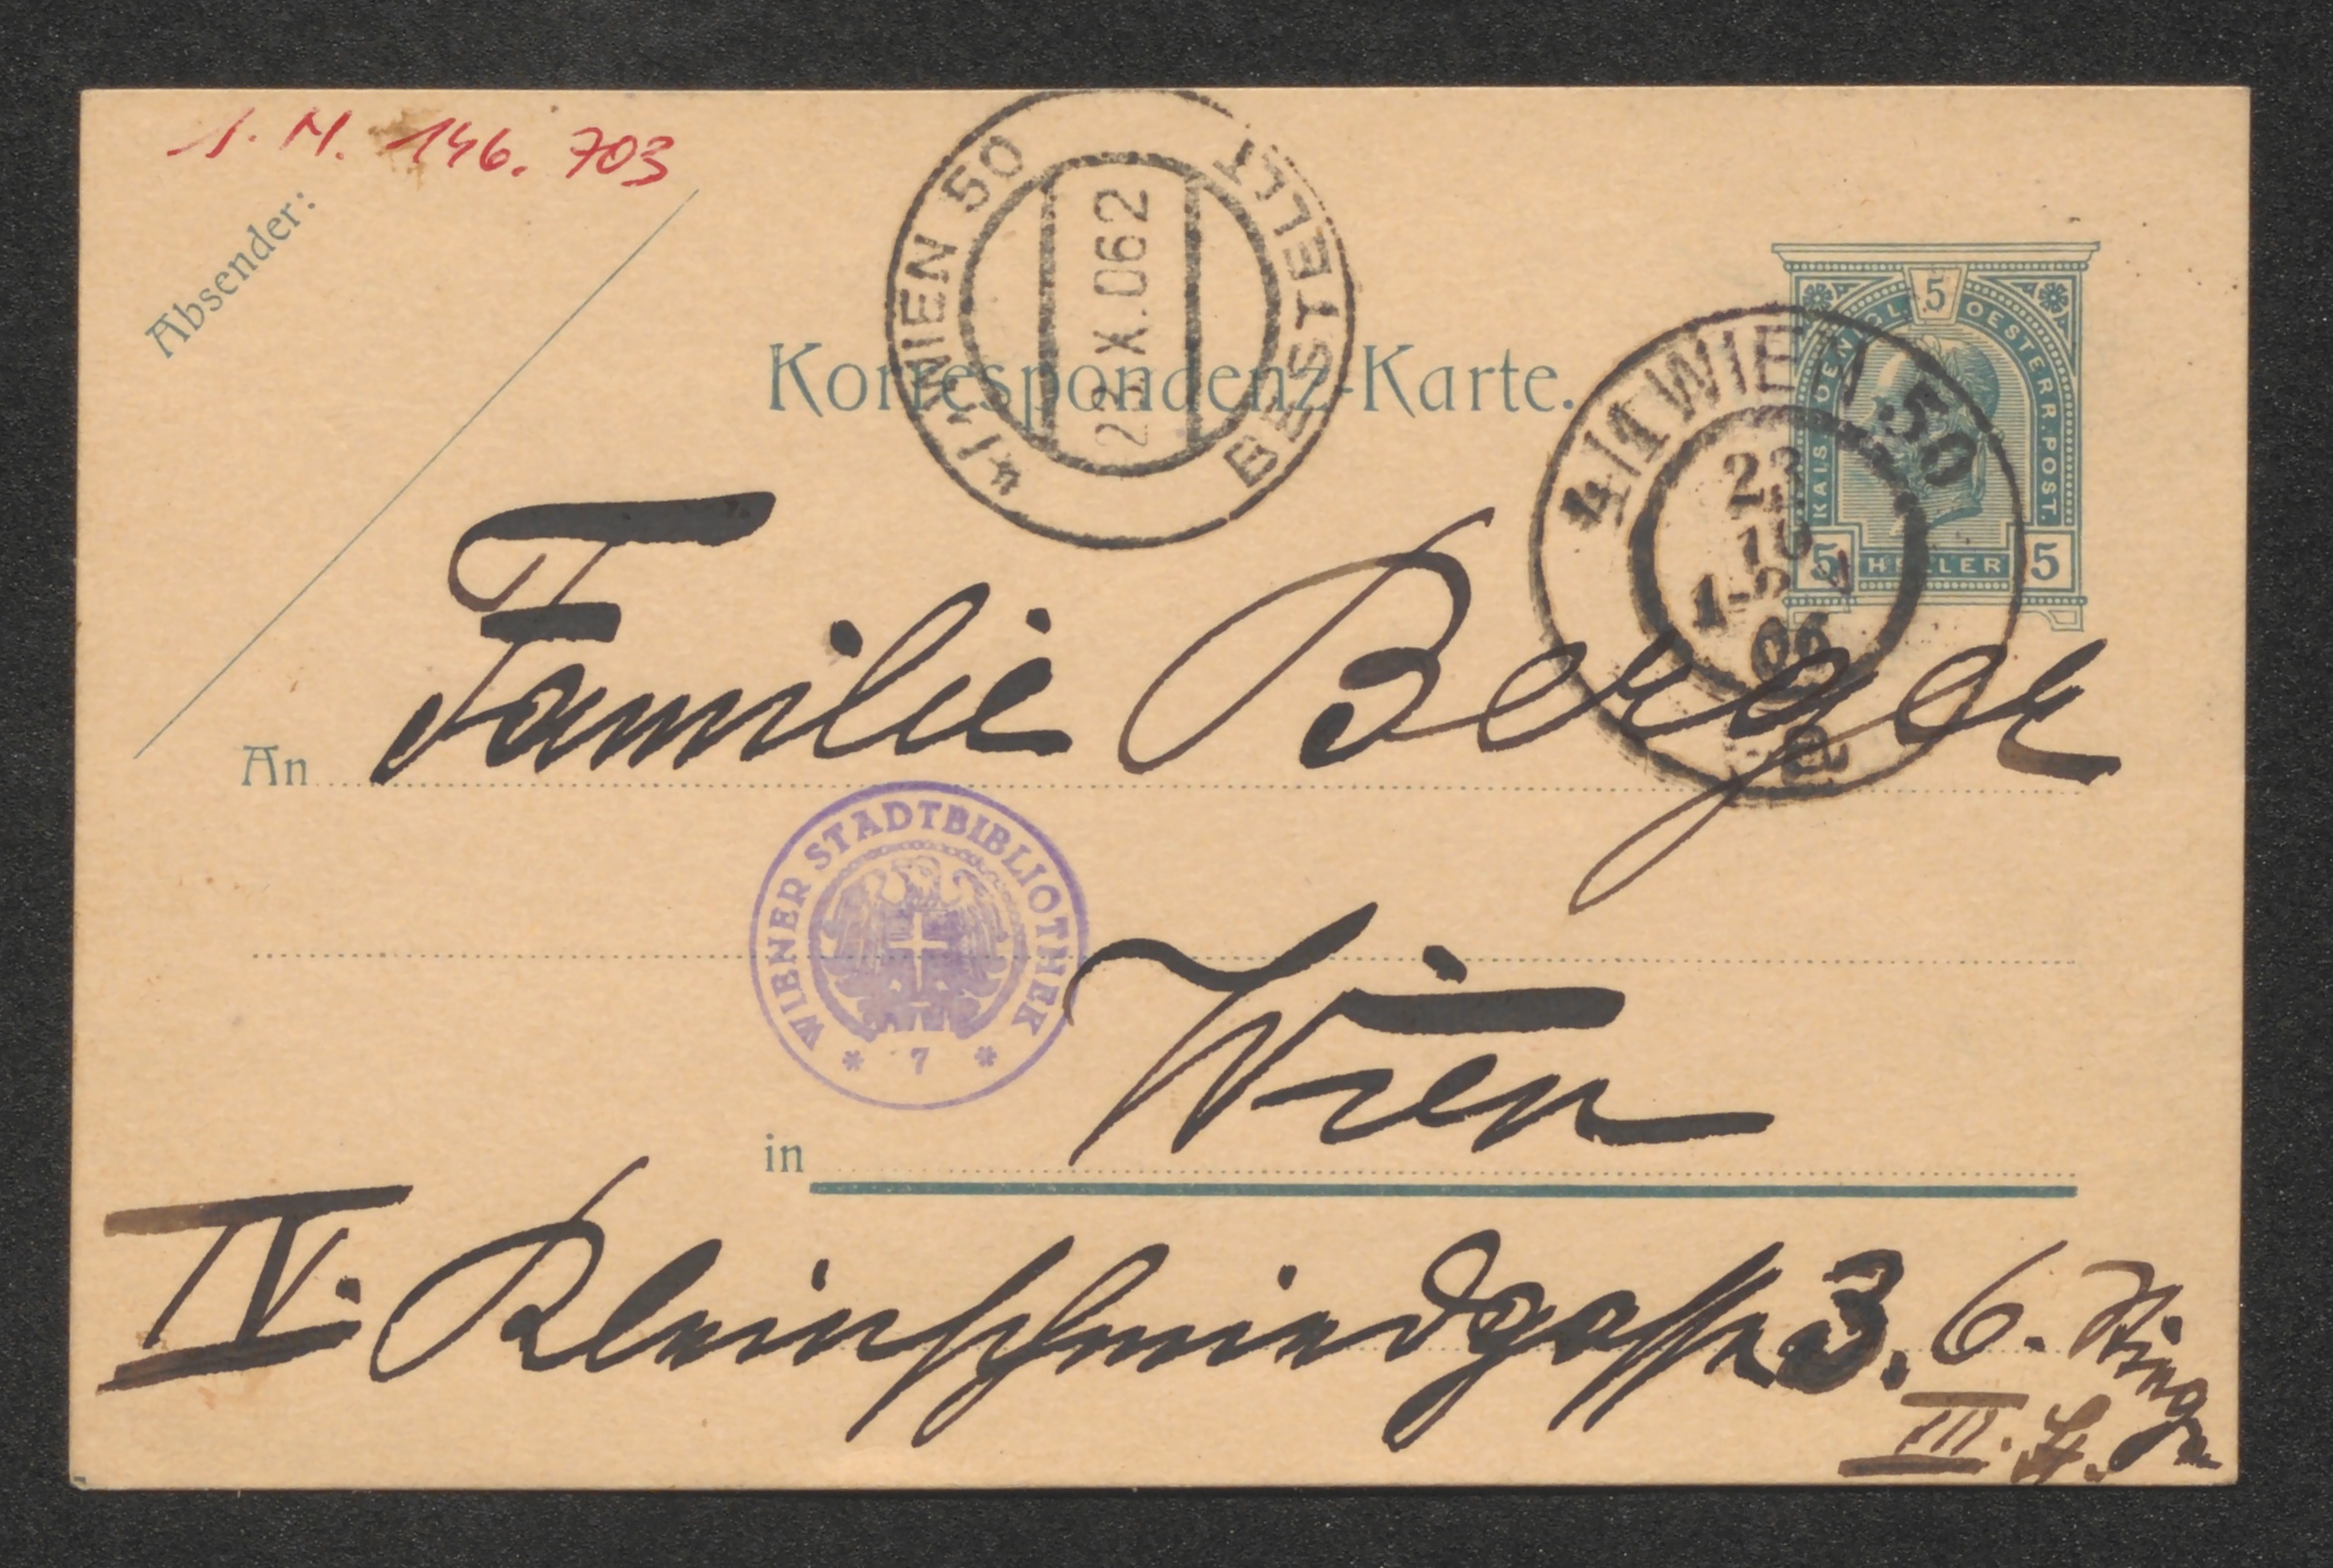 I. N. 146.703
Absender:
4/1 WIEN 50
BESTELLT
23.X.062
Korrespondenz-Karte.
KAIS. KOENIGL. OESTERR. POST.
5
5 HELLER 5
4/1 WIEN 50
23
10
06
a
An Familie Berger
WIENER STADTBIBLIOTHEK
* 7 *
in Wien
IV. Kleinschmiedgasse 3. 6.
III. St.